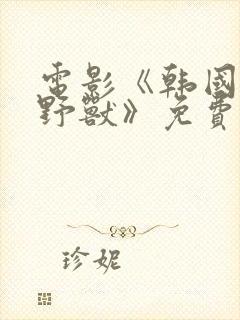 電影《韩國
野獸》免費
珍妮